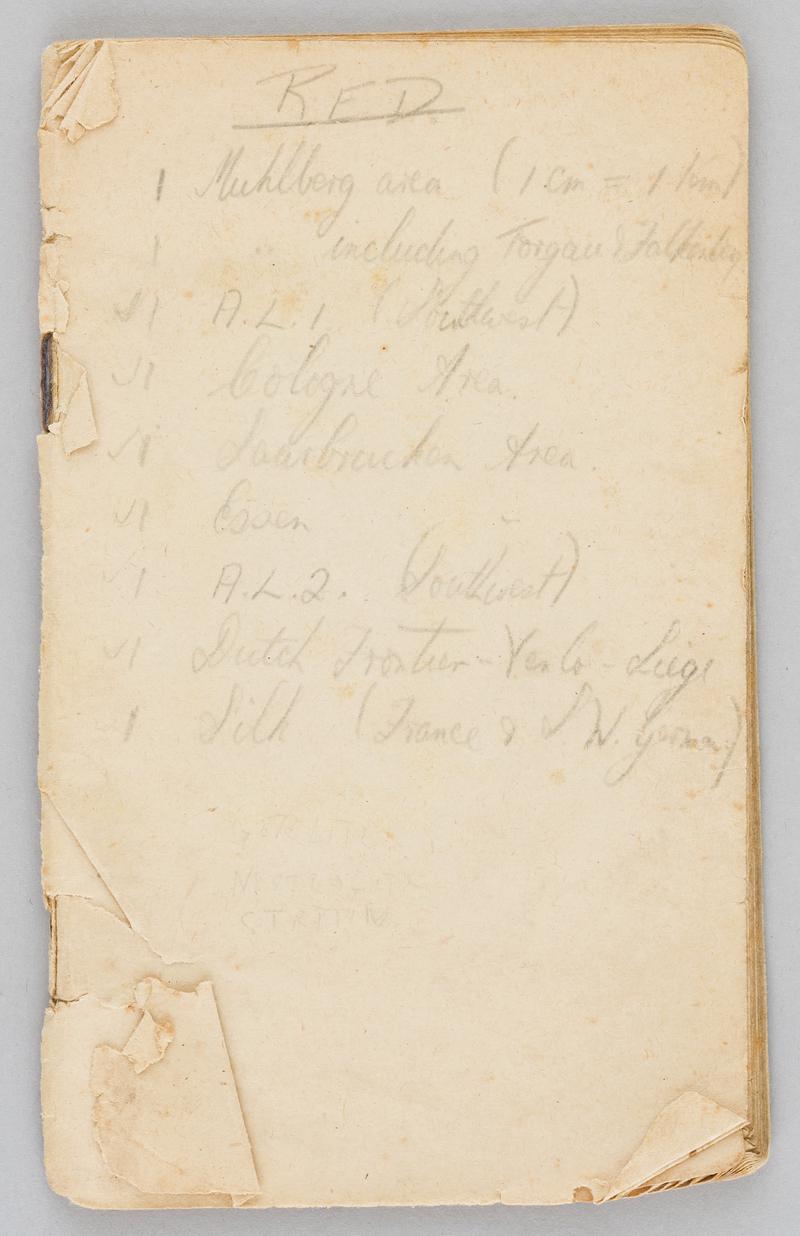 RED
1 Muhlberg area (1 cm = 1 km)
1 " including Torgau & Falkenberg
√1 A.L.1. (Southwest)
√1 Cologne Area.
√1 Saarbrucken Area.
√1 Essen
√1 A.L.2. (Southwest)
√1 Dutch Frontier - Venlo - Liege
√1 Silk (France & S.W. German)
STETTIN